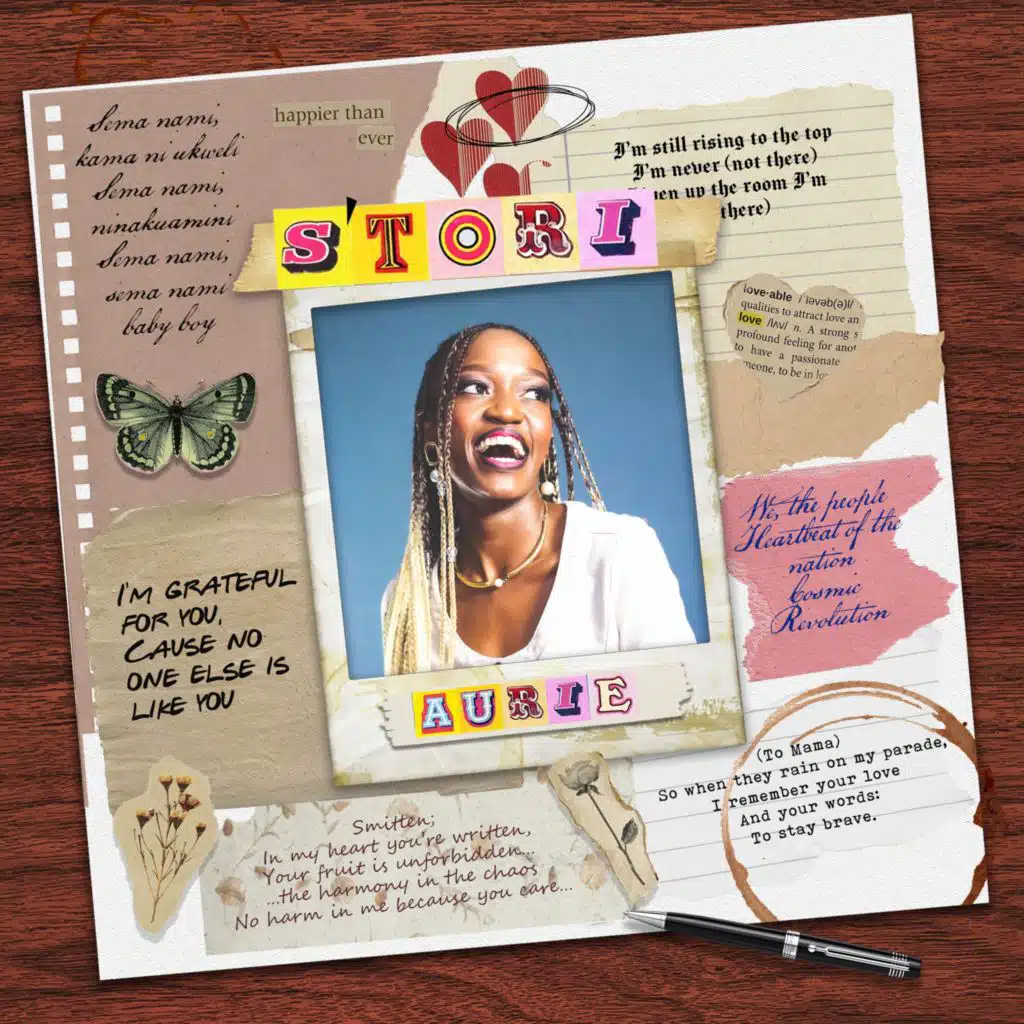 Sema nami,
kama ni ukweli
Sema nami,
ninakuamini
Sema nami,
sema nami
baby boy
happier than
ever
I'm still rising to the top
I'm never (not there)
up the room I'm
there)
S'TORI
love·able / ˈləvəb(ə)l/
qualities to attract love an
love /lʌv/ n. A strong
profound feeling for
to have a passionate
to be in
We, the people
Heartbeat of the
nation
Cosmic
Revolution
I'M GRATEFUL
FOR YOU,
CAUSE NO
ONE ELSE IS
LIKE YOU
AURIE
(To Mama)
So when they rain on my parade,
I remember your love
And your words:
To stay brave.
Smitten;
In my heart you're written,
Your fruit is unforbidden...
...the harmony in the chaos
No harm in me because you care...